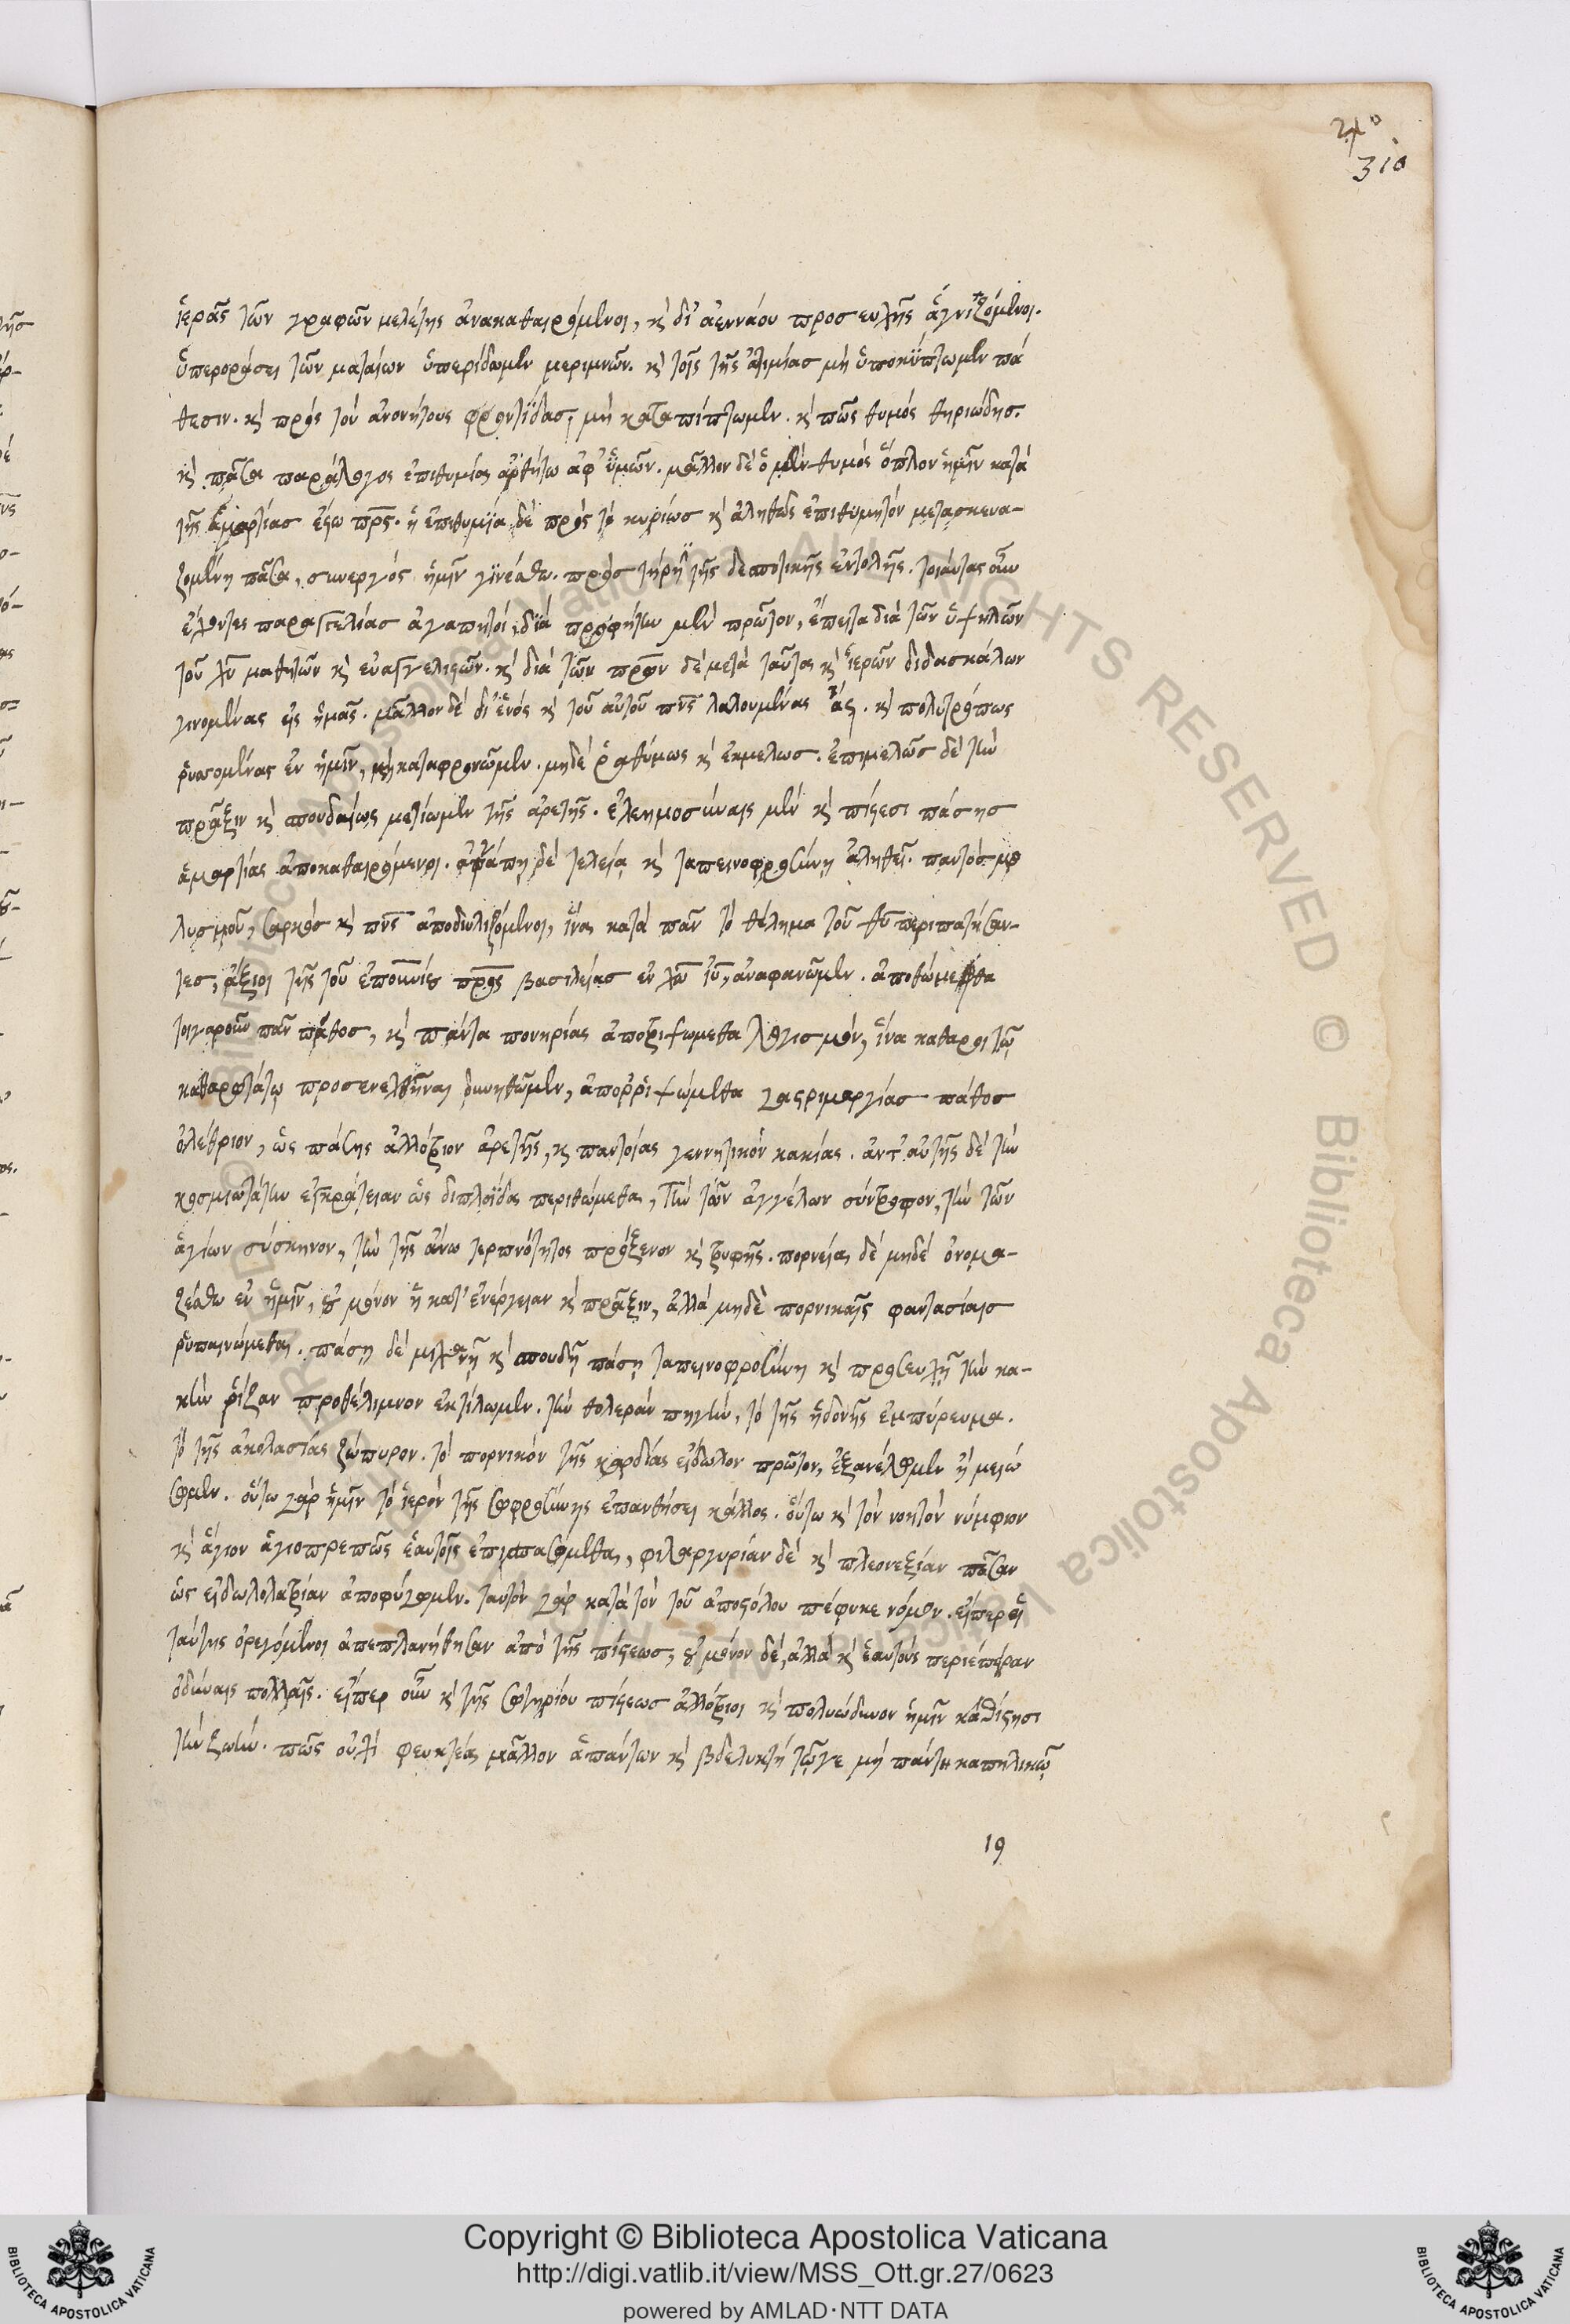 310
ἱερᾶς τῶν γραφῶν μελέτης ἀνακαθαιρόμενοι, κ δι' ἀεννάου προσευχῆς ἁγνιζόμενοι.
ὑπεροράσει τῶν ματαίων ὑπερίδωμεν μεριμνῶν. κ τοῖς τῆς ἀτιμίας μὴ ὑποκύπτωμεν πά
θεσιν. κ πρὸς τοὺ ἀνονήτους φροντίδας, μὴ καταπίπτωμεν. κ πῶς θυμός θηριώδης.
κ πᾶσα παράλογος ἐπιθυμία ἀρθήτω ἀφ' ὑμῶν. μᾶλλον δὲ ὁ μὲν θυμὸς ὅπλον ἡμῖν κατὰ
τῆς ἁμαρτίας ἔστω πρς. ἡ ἐπιθυμία δὲ πρὸς τὸ κυρίως κ ἀληθῶς ἐπιθυμητὸν μετασκευα-
ζομένη πᾶσα, συνεργός ἡμῖν γινέσθω. πρὸς τήρη τῆς δεσποτικῆς ἐντολῆς. τοιαύτας οὖν
ἔχοντες παραγγελίας ἀγαπητοί, διὰ προφήτων μὲν πρῶτον, ἔπειτα διὰ τῶν ὑψηλῶν
τοῦ χυ μαθητῶν κ εὐαγγελιστῶν. κ διὰ τῶν πρων δὲ μετὰ ταῦτα κ ἱερῶν διδασκάλων
γινομένας εἰς ἡμᾶς. μᾶλλον δὲ δι' ἑνός κ τοῦ αὐτοῦ πνς λαλουμένας . κ πολυτρόπως
ἐν ἡμῖν, μὴ καταφρονῶμεν. μηδὲ ῥαθύμως κ ἐκμελως. ἐπιμελῶς δὲ τὴν
πρᾶξιν κ σπουδαίως μετίωμεν τῆς ἀρετῆς. ἐλεημοσύναις μὲν κ πίστεσι πάσης
ἁμαρτίας ἀποκαθαιρόμενοι. ἀγάπῃ δὲ τελείᾳ κ ταπεινοφροσύνῃ ἀληθεῖ. παντός μο
λυσμοῦ, σαρκός κ πνς ἀποδιυλιζόμενοι, ἵνα κατὰ πᾶν τὸ θέλημα τοῦ θυ περιπατήσαν-
τες, ἄξιοι τῆς τοῦ ἐπουνίου προς βασιλείας ἐν χω ιυ, ἀναφανῶμεν. ἀποθώμεθα
τοιγαροῦν πᾶν πάθος, κ πάντα πονηρίας ἀπορίψωμεθα λογισμόν, ἵνα καθαροὶ τῷ
καθαρωτάτῳ προσενεχθῆναι δυνηθῶμεν, ἀπορρίψώμεθα γαστριμαργίας πάθος
ὀλέθριον, ὡς πάσης ἀλλότριον ἀρετῆς, κ παντοίας γεννητικὸν κακίας. ἀντ' αὐτῆς δὲ τὴν
κοσμιωτάτην ἐγκράτειαν ὡς διπλοΐδα περιθώμεθα, τὴν τῶν ἀγγέλων σύντροφον, τὴν τῶν
ἁγίων σύσκηνον, τὴν τῆς ἄνω τερπνότητος πρόξενον κ τρυφῆς. πορνεία δὲ μηδὲ ὀνομα-
ζέσθω ἐν ἡμῖν, οὐ μόνον ἡ κατ' ἐνέργειαν κ πρᾶξιν, ἀλλὰ μηδὲ πορνικαῖς φαντασίαις
ῥυπαινώμεθα. πάσῃ δὲ μηχανῇ κ σπουδῇ πάσῃ ταπεινοφροσύνῃ κ προσευχῇ τὴν κα-
κὴν ῥίζαν προθέλυμνον ἐκτίλωμεν. τὴν θολερὰν πηγὴν, τὸ τῆς ἡδονῆς ἐμπύρευμα.
τὸ τῆς ἀκολασίας ζώπυρον. τὸ πορνικὸν τῆς καρδίας εἴδωλον πρῶτον, ἐξανέλωμεν ἢ μειώ
σωμεν. οὕτω γὰρ ἡμῖν τὸ ἱερὸν τῆς σωφροσύνης ἐπανθήσει κάλλος. οὕτω κ τὸν νοητὸν νύμφιον
κ ἅγιον ἁγιοπρεπῶς ἑαυτοῖς ἐπισπασώμεθα, φιλαργυρίαν δὲ κ πλεονεξίαν πᾶσαν
ὡς εἰδωλολατρίαν ἀποφύγωμεν. ταυτὸν γὰρ κατὰ τὸν τοῦ ἀποστόλου πέφυκε νόμον. εἴπερ οἱ
ταύτης ὀρεγόμενοι ἀπεπλανήθησαν ἀπὸ τῆς πίστεως, οὐ μόνον δέ, ἀλλὰ κ ἑαυτοὺς περιέπειραν
ὀδύναις πολλαῖς. εἴπερ οὖν κ τῆς σωτηρίου πίστεως ἀλλότριοι κ πολυώδυνον ἡμῖν καθίστησι
τὴν ζωὴν. πῶς οὐχὶ φευκτέα μᾶλλον ἁπάντων κ βδελυκτὴ τῷγε μὴ πάντη καπηλικῷ
19
Copyright © Biblioteca Apostolica Vaticana
http://digi.vatlib.it/view/MSS_Ott.gr.27/0623
powered by AMLAD·NTT DATA